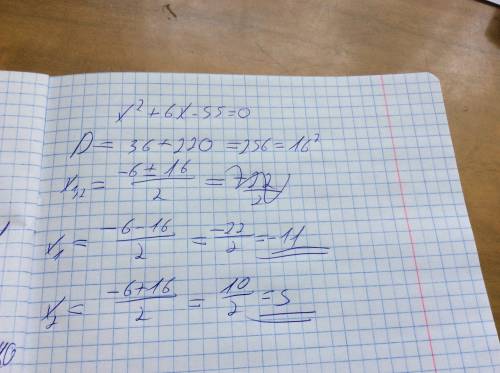 x²+6x-55=0
D= 36+220 =256=16²
x₁,₂= -6±16/2 =
x₁= -6-16/2 = -22/2 =-11
x₂= -6+16/2 = 10/2 =5